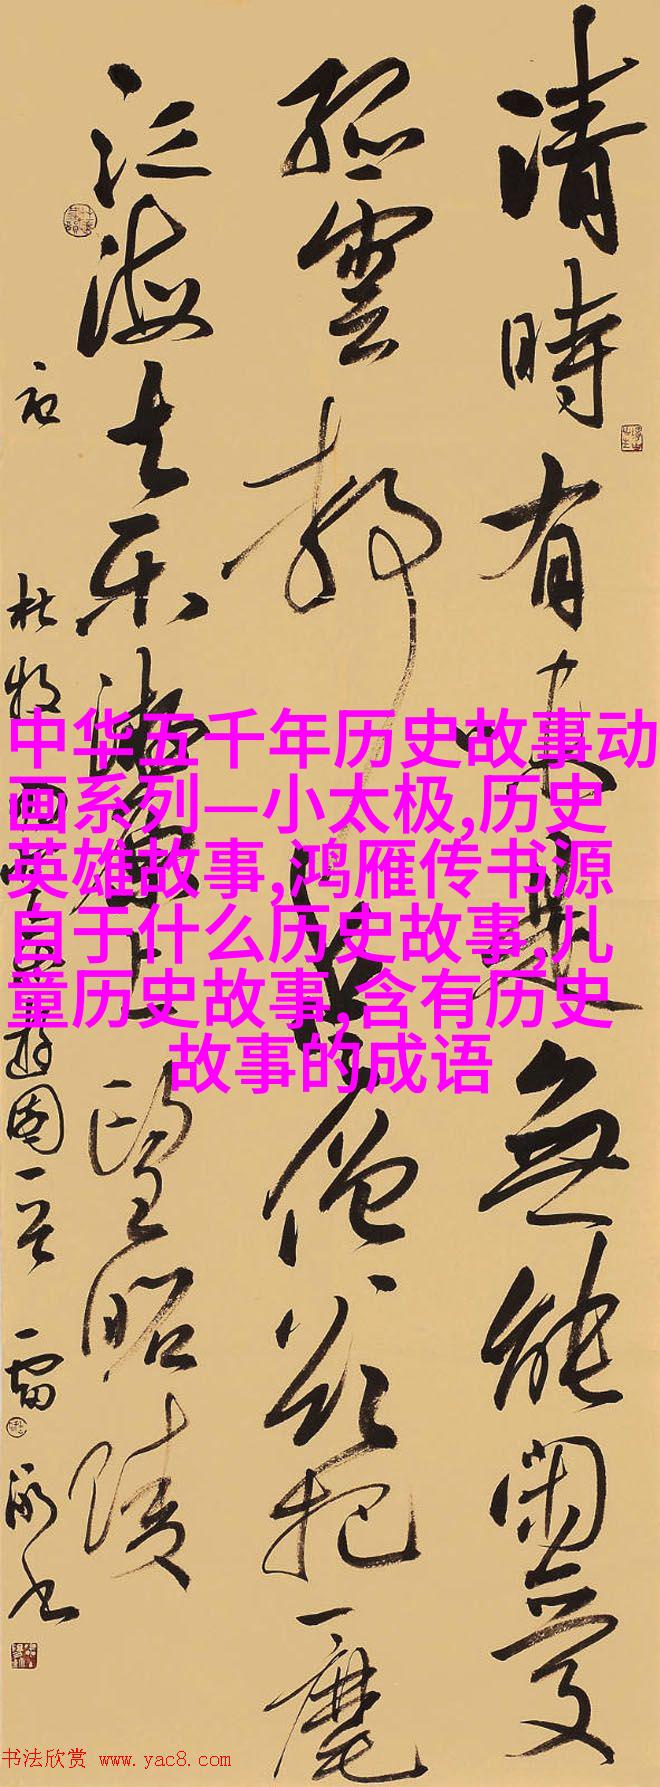 清時有味是無能閑愛
孤雲静愛僧欲把一麾
江海去乐游原上望昭陵
右
杜牧
中华五千年历史故事动
画系列—小太极,历史
英雄故事,鸿雁传书源
自于什么历史故事,儿
童历史故事,含有历史
故事的成语
书法欣赏 www.yac8.com